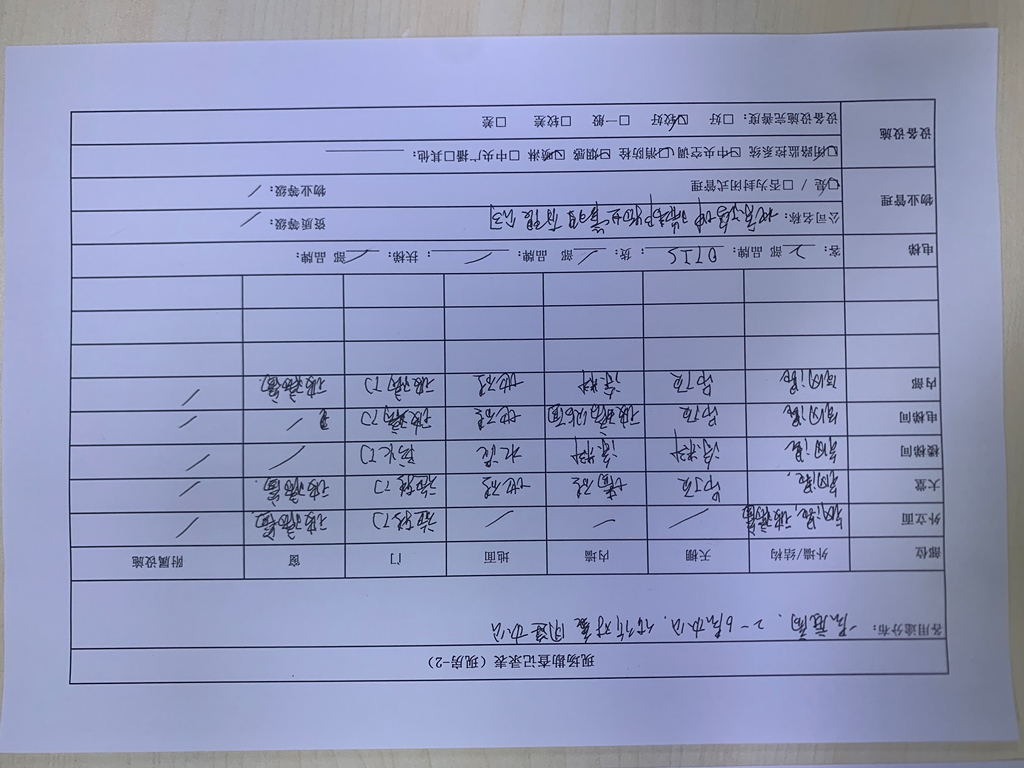 现场勘查记录表（现房-2）
各用途分布： 一层商, 2-6层办公, 估价对象用途办公
部位 外墙/结构 天棚 内墙 地面 门 窗 附属设施
外立面 钢混, 玻璃幕 / / / 旋转门 玻璃窗 /
大堂 钢混, 吊顶 墙砖 地砖 旋转门 玻璃窗 /
楼梯间 钢混 涂料 涂料 水泥 防火门 / /
电梯间 钢混 吊顶 玻璃 地砖 玻璃门 / /
内部 钢混 吊顶 涂料 地砖 玻璃门 玻璃窗 /
电梯 客： 2 部 品牌： OTIS ； 货： / 部 品牌： / ； 扶梯： / 部 品牌：
物业管理 公司名称： 物业管理有限公司 资质等级： /
☑是 / □否为封闭式管理 物业等级： /
设备设施 ☑闭路监控系统 ☑中央空调 ☑消防栓 ☑烟感 ☑喷淋 □中央广播 □其他：
设备设施完善度： □好 ☑较好 □一般 □较差 □差